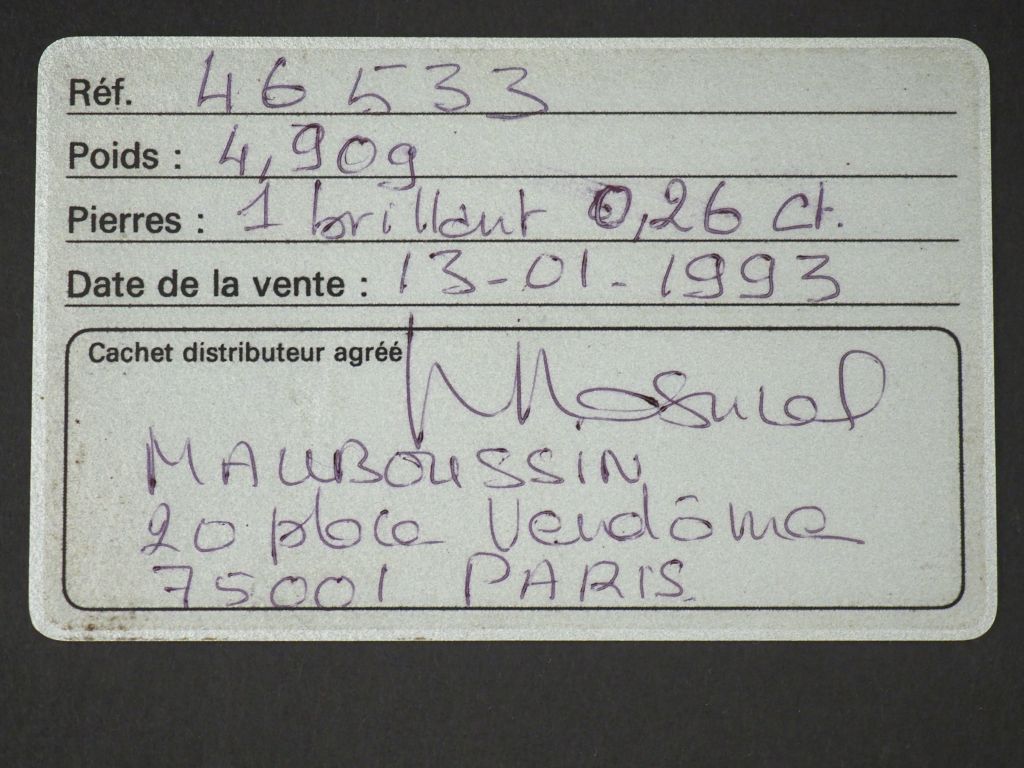 Réf. 46533
Poids : 4,90g
Pierres : 1 brillant 0,26 ct.
Date de la vente : 13-01-1993
Cachet distributeur agréé
MAUBOUSSIN
20 place Vendôme
75001 PARIS